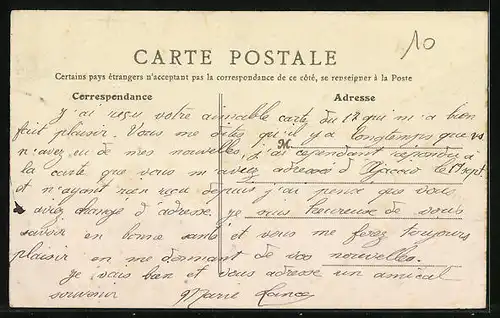 10
CARTE POSTALE
Certains pays étrangers n'acceptant pas la correspondance de ce côté, se renseigner à la Poste
Correspondance Adresse
M
J'ai reçu votre aimable carte du 12 qui m'a bien
fait plaisir. Vous me dites qu'il y a longtemps que vs
n'avez eu de mes nouvelles, j'ai cependant répondu à
la carte que vous m'aviez adressée d'Ajaccio le 1er sept
et n'ayant rien reçu depuis j'ai pensé que vous
aviez changé d'adresse. je suis heureuse de vous
savoir en bonne santé et vous me ferez toujours
plaisir en me donnant de vos nouvelles.
Je vais bien et vous adresse un amical
souvenir Marie